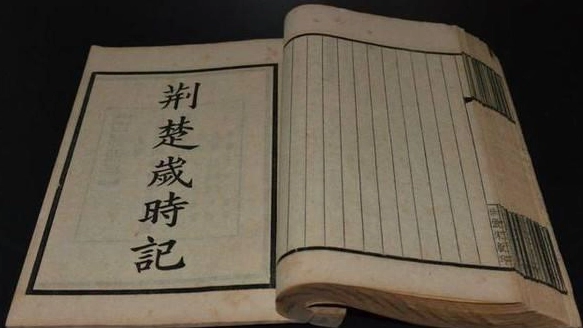 荆楚歲時記